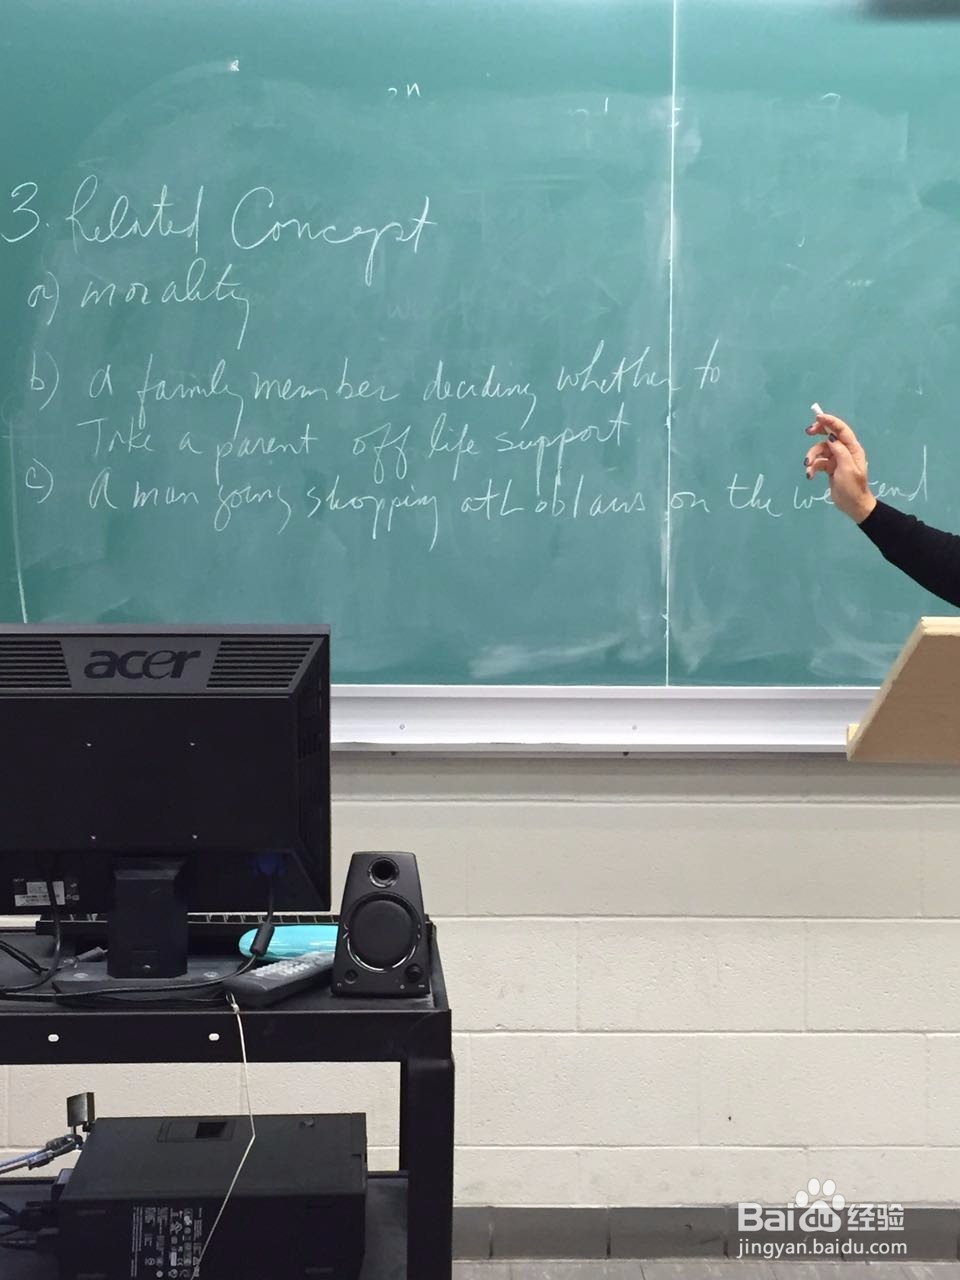 3. Related Concept
a) morality
b) a family member deciding whether to
Take a parent off life support
c) A man going shopping at Loblaws on the weekend
acer
Bai 经验
jingyan.baidu.com